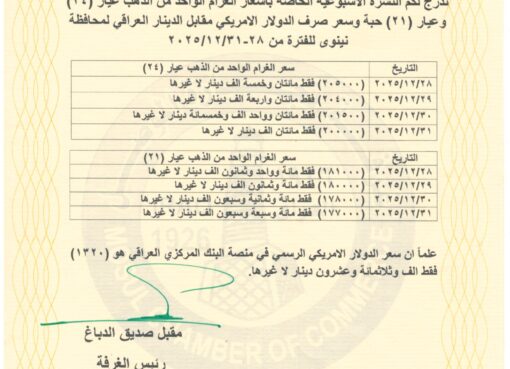 ندرج لكم النشرة الاسبوعية الخاصة باسعار الغرام الواحد من الذهب عيار (٢٤)
وعيار (٢١) حبة وسعر صرف الدولار الامريكي مقابل الدينار العراقي لمحافظة
نينوى للفترة من ٢٨-٢٠٢٥/١٢/٣١
التاريخ سعر الغرام الواحد من الذهب عيار (٢٤)
٢٠٢٥/١٢/٢٨ (٢٠٥٠٠٠) فقط مائتان وخمسة الف دينار لا غيرها
٢٠٢٥/١٢/٢٩ (٢٠٤٠٠٠) فقط مائتان واربعة الف دينار لا غيرها
٢٠٢٥/١٢/٣٠ (٢٠١٥٠٠) فقط مائتان وواحد الف وخمسمائة دينار لا غيرها
٢٠٢٥/١٢/٣١ (٢٠٠٠٠٠) فقط مائتان الف دينار لا غيرها
التاريخ سعر الغرام الواحد من الذهب عيار (٢١)
٢٠٢٥/١٢/٢٨ (١٨١٠٠٠) فقط مائة وواحد وثمانون الف دينار لا غيرها
٢٠٢٥/١٢/٢٩ (١٨٠٠٠٠) فقط مائة وثمانون الف دينار لا غيرها
٢٠٢٥/١٢/٣٠ (١٧٨٠٠٠) فقط مائة وثمانية وسبعون الف دينار لا غيرها
٢٠٢٥/١٢/٣١ (١٧٧٠٠٠) فقط مائة وسبعة وسبعون الف دينار لا غيرها
1926
علماً ان سعر الدولار الامريكي الرسمي في منصة البنك المركزي العراقي هو (١٣٢٠)
فقط الف وثلاثمائة وعشرون دينار لا غيرها.
CHAMBER OF COMMERCE
مقبل صديق الدباغ
رئيس الغرفة